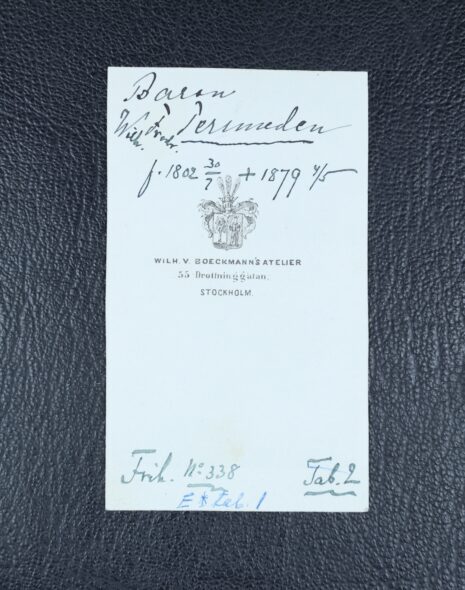 Baron
Wilh. Fredr. Tersmeden
f. 1802 30/7 + 1879 4/5
WILH. V. BOECKMANN'S ATELIER
55 Drottninggatan.
STOCKHOLM.
Frih. No 338 Tab. 2